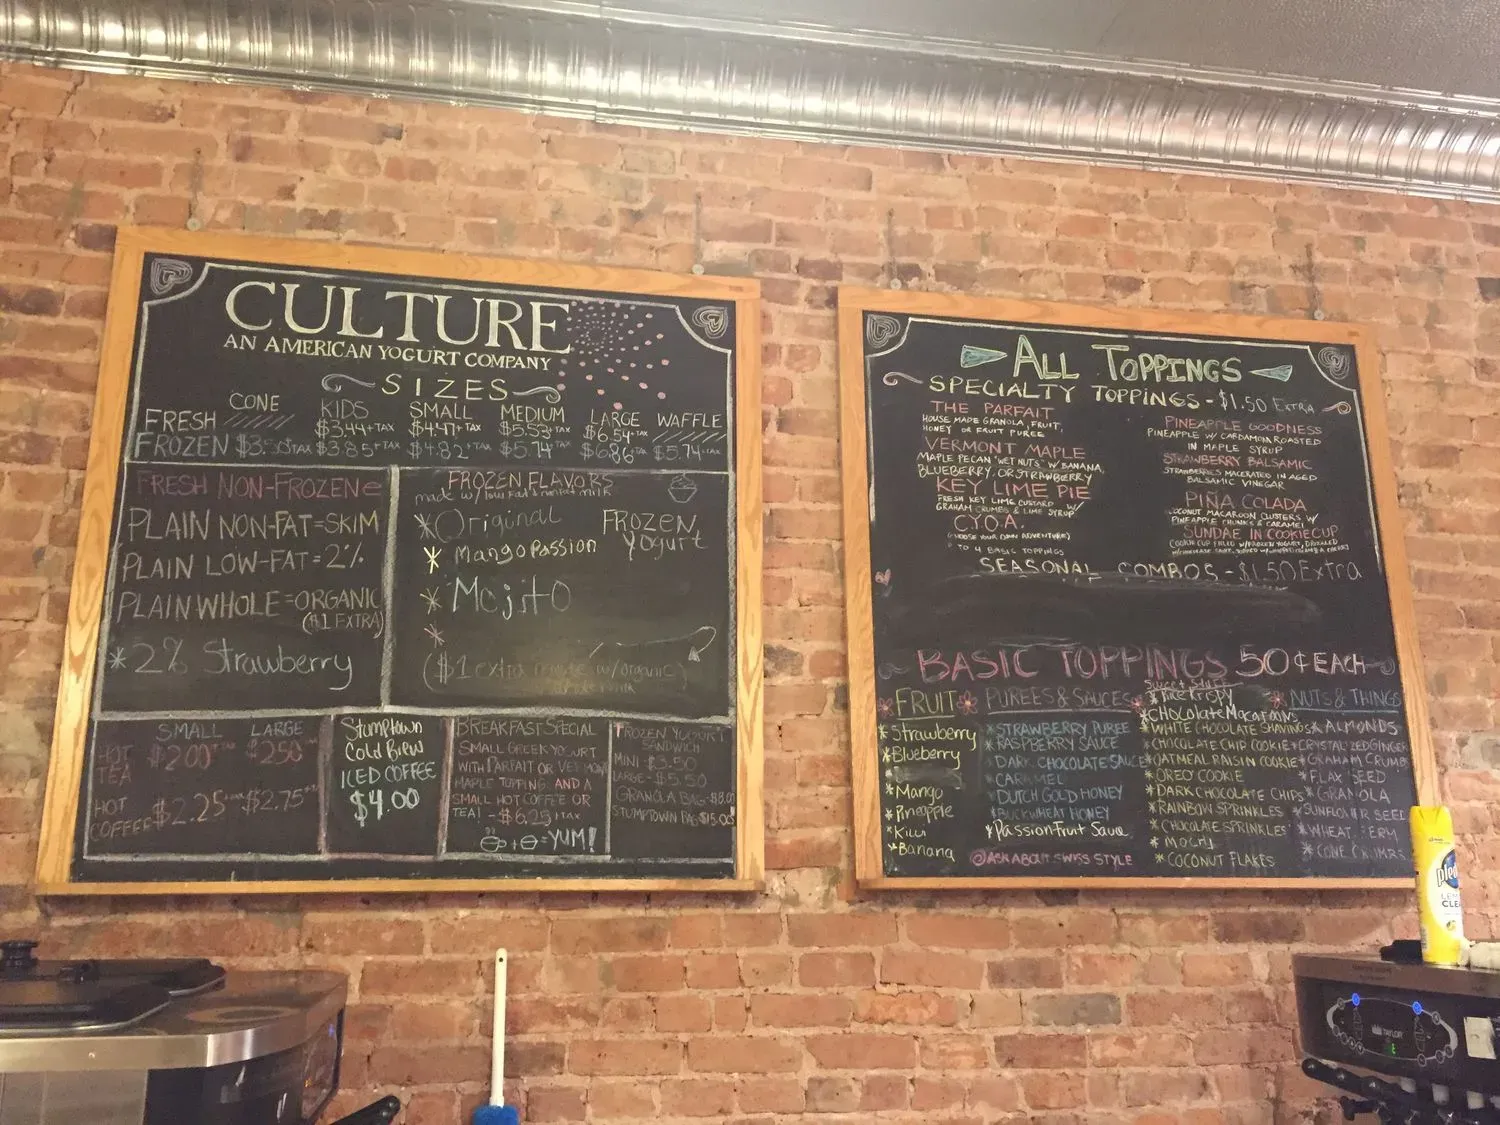 CULTURE
AN AMERICAN YOGURT COMPANY
SIZES
CONE KIDS SMALL MEDIUM LARGE WAFFLE
FRESH $3.44+TAX $4.47+TAX $5.53+TAX $6.54+TAX
FROZEN $3.85+TAX $4.82+TAX $5.74+TAX $6.86+TAX $5.74+TAX
FRESH NON-FROZEN
PLAIN NON-FAT=SKIM
PLAIN LOW-FAT=2%
PLAIN WHOLE=ORGANIC
($1 EXTRA)
*2% Strawberry
FROZEN FLAVORS
made w/ low fat & nonfat milk
*Original
FROZEN YOgurt
* Mango Passion
* Mojito
*
($1 extra w/organic)
milk
SMALL LARGE
HOT TEA $2.00+TAX $2.50
HOT COFFEE $2.25+TAX $2.75+TAX
Stumptown
Cold Brew
ICED COFFEE
$4.00
BREAKFAST SPECIAL
SMALL GREEK YOGURT
WITH PARFAIT OR VERMONT
MAPLE TOPPING AND A
SMALL HOT COFFEE OR
TEA! -$6.25+TAX
+ =YUM!
FROZEN YOGURT
SANDWICH
MINI-$3.50
LARGE-$5.50
GRANOLA BAG-$8.00
STUMPTOWN BAG $15.00
ALL TOPPINGS
SPECIALTY TOPPINGS-$1.50 EXTRA
THE PARFAIT
HOUSE MADE GRANOLA, FRUIT,
HONEY OR FRUIT PUREE
VERMONT MAPLE
MAPLE PECAN "WET NUTS" W/ BANANA,
BLUEBERRY, OR STRAWBERRY
KEY LIME PIE
FRESH KEY LIME CUSTARD W/
GRAHAM CRUMBS & LIME SYRUP
C.Y.O.A.
(CHOOSE YOUR OWN ADVENTURE)
TO 4 BASIC TOPPINGS
PINEAPPLE GOODNESS
PINEAPPLE W/ CARDAMOM ROASTED
IN MAPLE SYRUP
STRAWBERRY BALSAMIC
STRAWBERRIES MACERATED IN AGED
BALSAMIC VINEGAR
PIÑA COLADA
COCONUT MACAROON CLUSTERS W/
PINEAPPLE CHUNKS & CARAMEL
SUNDAE IN COOKIE CUP
COOKIE CUP FILLED W/ FROZEN YOGURT, DRIZZLED
SEASONAL COMBOS-$1.50 Extra
BASIC TOPPINGS 50¢ EACH
FRUIT
*Strawberry
*Blueberry
*Mango
*Pineapple
*Kiwi
*Banana
PUREES & SAUCES
*STRAWBERRY PUREE
*RASPBERRY SAUCE
*DARK CHOCOLATE SAUCE
*CARAMEL
*DUTCH GOLD HONEY
*BUCKWHEAT HONEY
*PASSION FRUIT Sauce
@ASK ABOUT SWISS STYLE
*Rice Krispy
*CHOcolate Macaroons
*WHITE CHOCOLATE SHAVINGS
*CHOCOLATE CHIP COOKIE
*OATMEAL RAISIN COOKIE
*OREO COOKIE
*DARK CHOCOLATE CHIPS
*RAINBOW SPRINKLES
*CHOCOLATE SPRINKLES
*MOCHI
*COCONUT FLAKES
NUTS & THINGS
*ALMONDS
*CRYSTALIZED GINGER
*GRAHAM CRUMB
*FLAX SEED
*GRANOLA
*SUNFLOWER SEED
*WHEAT GERM
*CONE CRUMBS
Pledge
TAYLOR